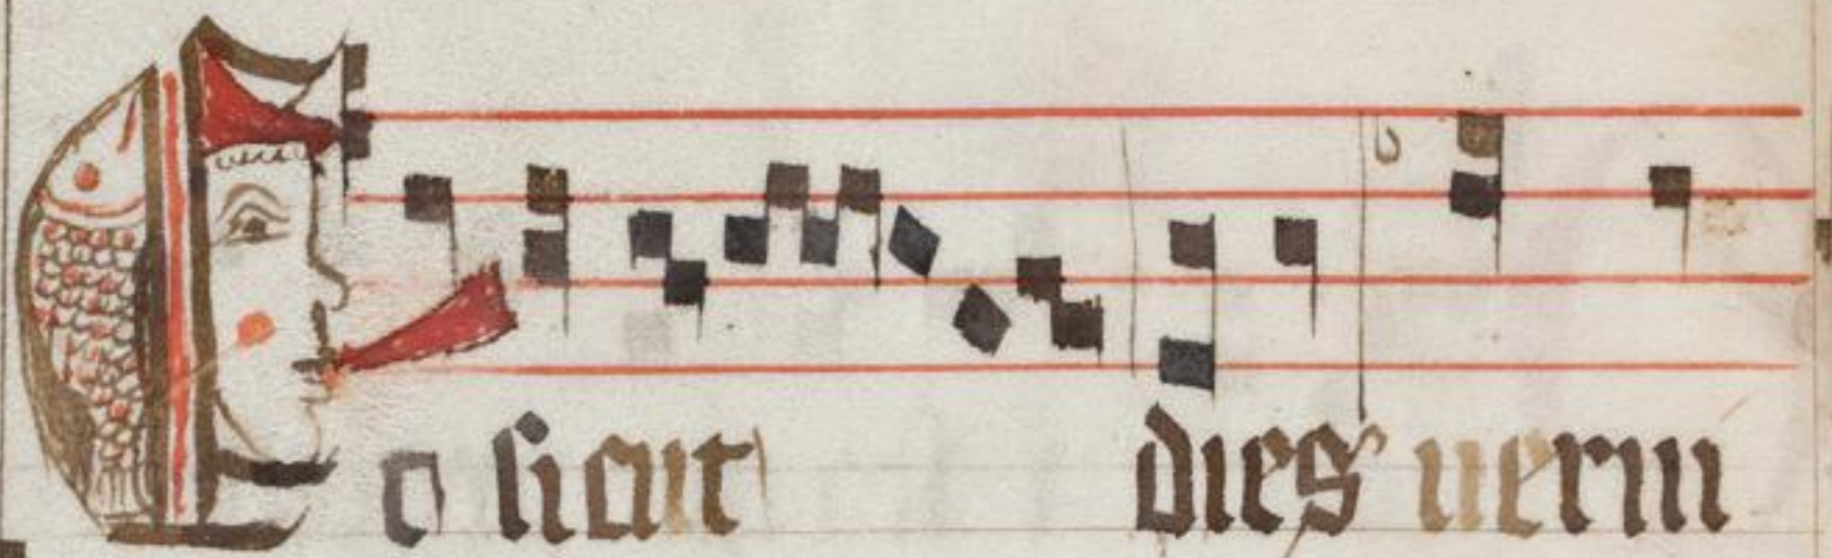 Et sicut dies uerni